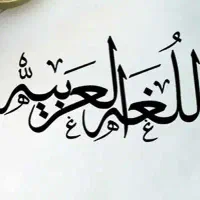 اللُّغَة العَرَبِيَّة